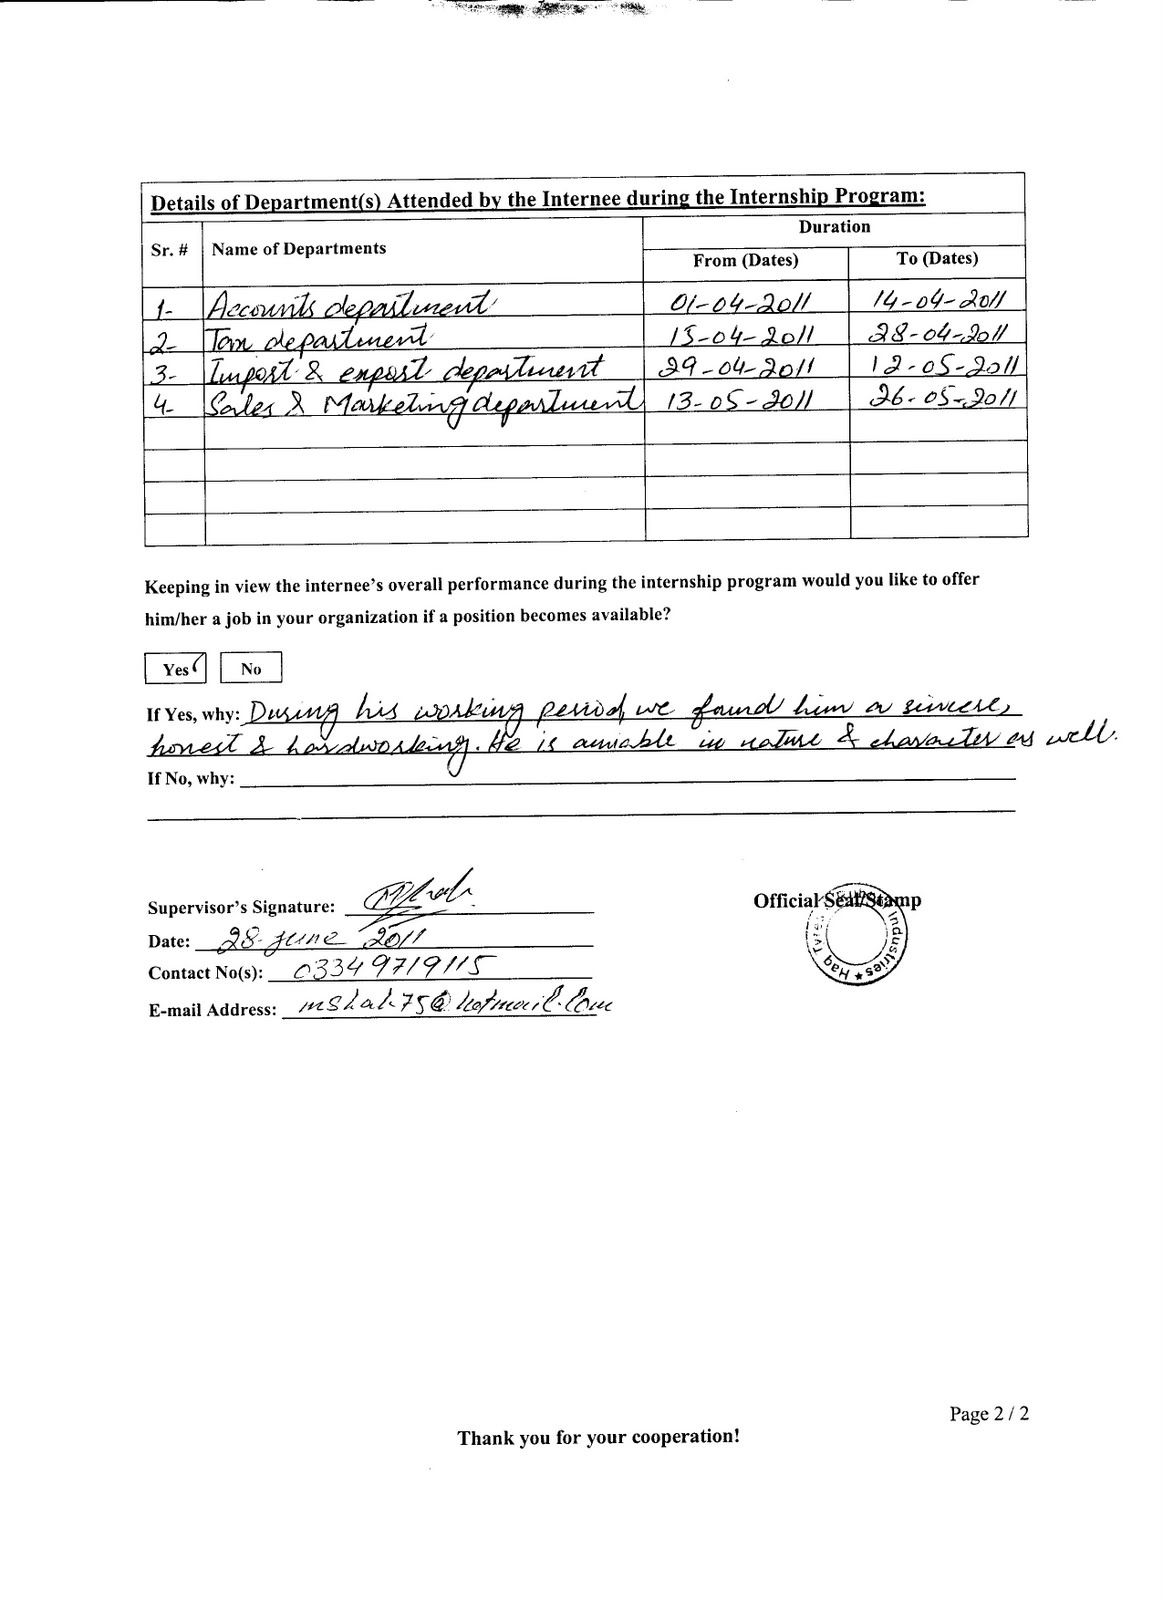 Details of Department(s) Attended by the Internee during the Internship Program:
Sr. # Name of Departments Duration
From (Dates) To (Dates)
1- Accounts department 01-04-2011 14-04-2011
2- Tax department 15-04-2011 28-04-2011
3- Import & export department 29-04-2011 12-05-2011
4- Sales & Marketing department 13-05-2011 26-05-2011
Keeping in view the internee's overall performance during the internship program would you like to offer
him/her a job in your organization if a position becomes available?
Yes No
If Yes, why: During his working period, we found him a sincere,
honest & hardworking. He is amiable in nature & character as well.
If No, why:
Supervisor's Signature:
Official Seal/Stamp
Haq Tyres Industries
Date: 28-June 2011
Contact No(s): 03349719115
E-mail Address: mshah75@hotmail.com
Page 2 / 2
Thank you for your cooperation!